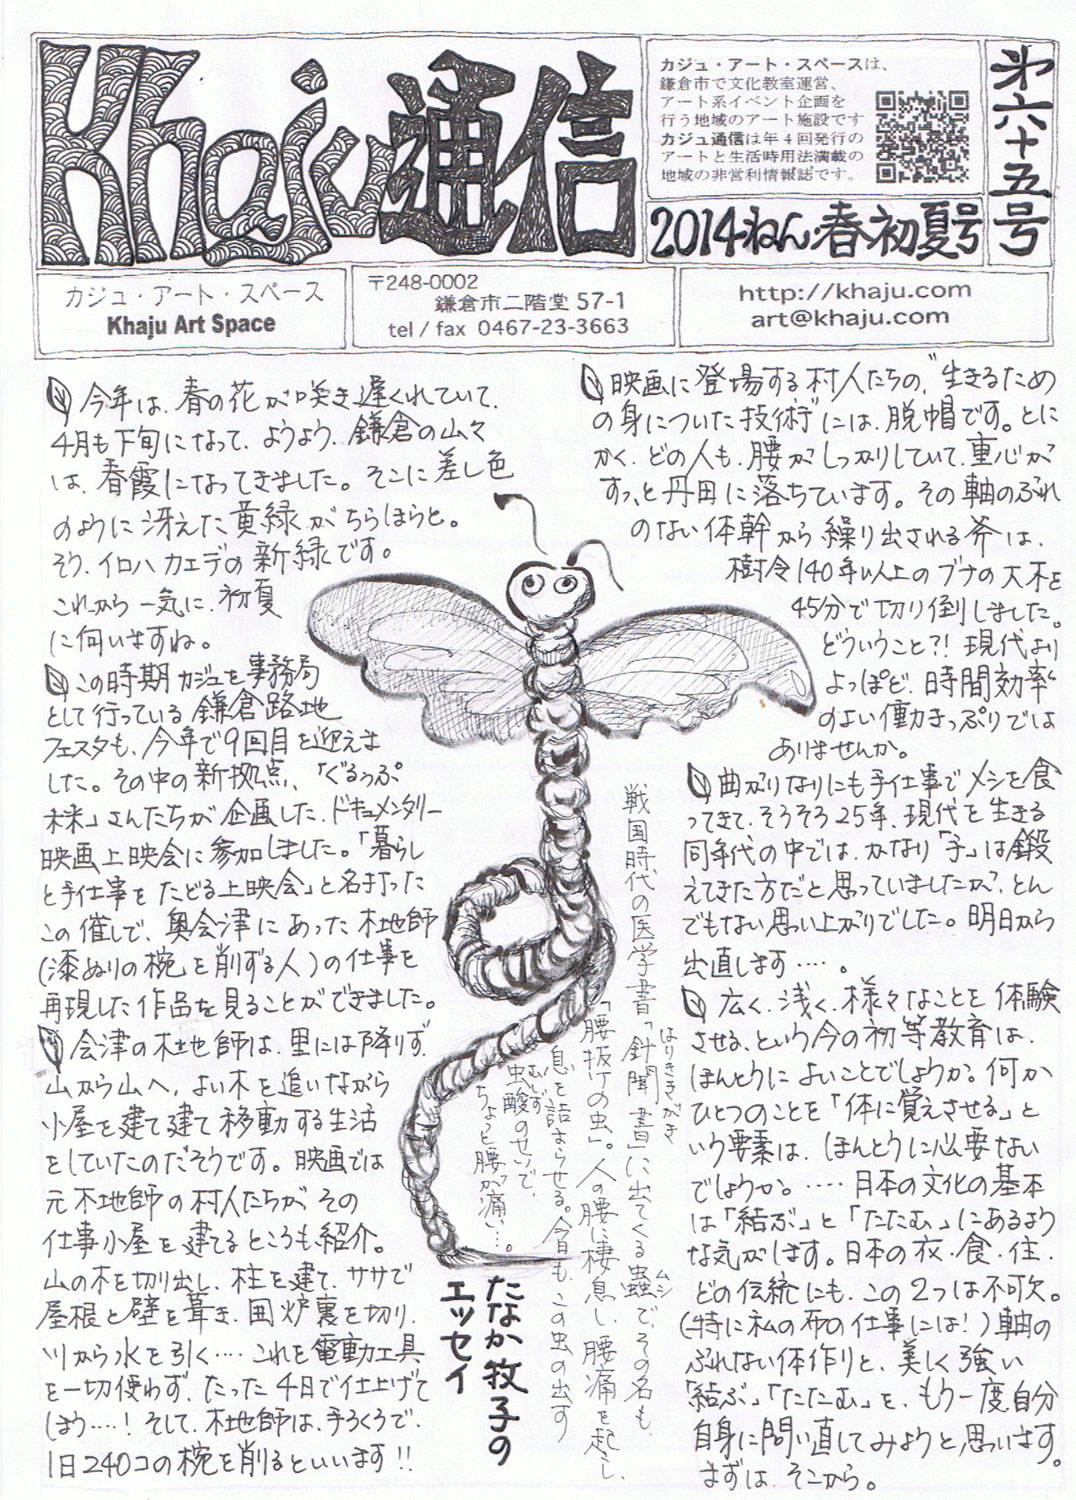 Khaju通信
カジュ・アート・スペースは、
鎌倉市で文化教室運営、
アート系イベント企画を
行う地域のアート施設です
カジュ通信は年4回発行の
アートと生活時用法満載の
地域の非営利情報誌です。
第六十五号
2014ねん・春初夏号
カジュ・アート・スペース
Khaju Art Space
〒248-0002
鎌倉市二階堂 57-1
tel / fax 0467-23-3663
http://khaju.com
art@khaju.com
今年は、春の花が咲き遅くれていて、
4月も下旬になって、ようよう、鎌倉の山々
は、春霞になってきました。そこに差し色
のように冴えた黄緑がちらほらと。
そう、イロハカエデの新緑です。
これから一気に、初夏
に向いますね。
この時期カジュを事務局
として行っている鎌倉路地
フェスタも、今年で9回目を迎えま
した。その中の新拠点、「ぐるっぷ
未来」さんたちが企画した、ドキュメンタリー
映画上映会に参加しました。「暮らし
と手仕事をたどる上映会」と名打った
この催しで、奥会津にあった木地師
(漆ぬりの椀を削ずる人)の仕事を
再現した作品を見ることができました。
会津の木地師は、里には降りず、
山から山へ、よい木を追いながら
小屋を建て建て移動する生活
をしていたのだそうです。映画では
元木地師の村人たちが、その
仕事小屋を建てるところも紹介。
山の木を切り出し、柱を建て、ササで
屋根と壁を葺き、囲炉裏を切り、
川から水を引く‥‥これを電動工具
を一切使わず、たった4日で仕上げて
しまう‥‥！そして、木地師は、手ろくろで、
1日240コの椀を削るといいます!!
映画に登場する村人たちの、"生きるため
の身についた技術"には、脱帽です。とに
かく、どの人も、腰がしっかりしていて、重心が
すっと丹田に落ちています。その軸のぶれ
のない体幹から繰り出される斧は、
樹令140年以上のブナの大木を
45分で切り倒しました。
どういうこと?!現代より
よっぽど、時間効率
のよい働きっぷりでは
ありませんか。
曲がりなりにも手仕事でメシを食
ってきて、そろそろ25年、現代を生きる
同年代の中では、かなり「手」は鍛
えてきた方だと思っていましたが、とん
でもない思い上がりでした。明日から
出直します‥‥。
広く、浅く、様々なことを体験
させる、という今の初等教育は、
ほんとうによいことでしょうか。何か
ひとつのことを「体に覚えさせる」と
いう要素は、ほんとうに必要ない
でしょうか。‥‥日本の文化の基本
は「結ぶ」と「たたむ」にあるよう
な気がします。日本の衣・食・住、
どの伝統にも、この2つは不可欠。
(特に私の布の仕事には!)軸の
ぶれない体作りと、美しく強い
「結ぶ」「たたむ」を、もう一度自分
自身に問い直してみようと思います。
まずは、そこから。
戦国時代の医学書「針聞書」に出てくる蟲で、その名も、
はりききがき
ムシ
「腰抜けの虫」。人の腰に棲息し、腰痛を起こし、
息を詰まらせる。今日も、この虫の出す
虫酸のせいで、
むしず
ちょっと腰が痛い‥。
たなか牧子の
エッセイ